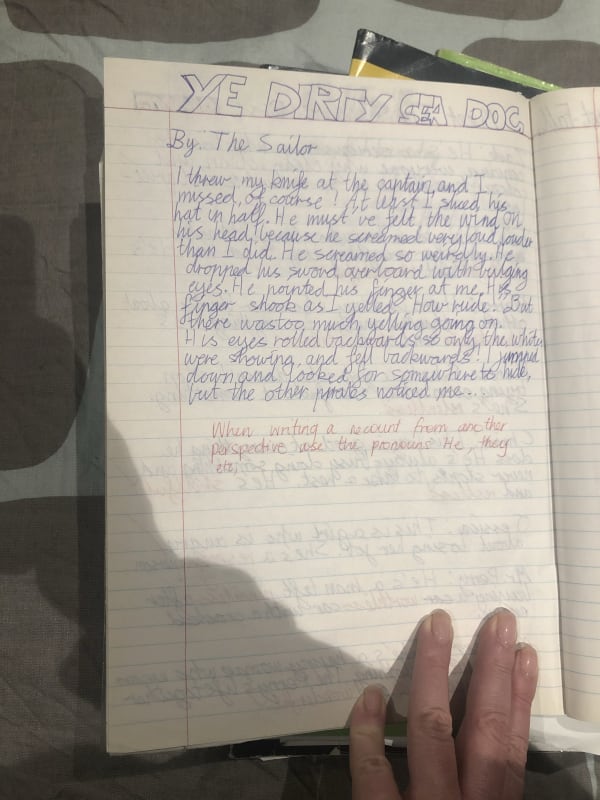 YE DIRTY SEA DOG
By: The Sailor
I threw my knife at the captain, and I
missed, of course! At least I sliced his
hat in half. He must've felt the wind on
his head, because he screamed very loud, louder
than I did. He screamed so weirdly. He
dropped his sword overboard with bulging
eyes. He pointed his finger at me. His
finger shook as I yelled. How rude! But
there was too much yelling going on.
His eyes rolled backwards so only the whites
were showing, and fell backwards! I jumped
down and looked for somewhere to hide,
but the other pirates noticed me...
When writing a recount from another
perspective use the pronouns He, they
etc.